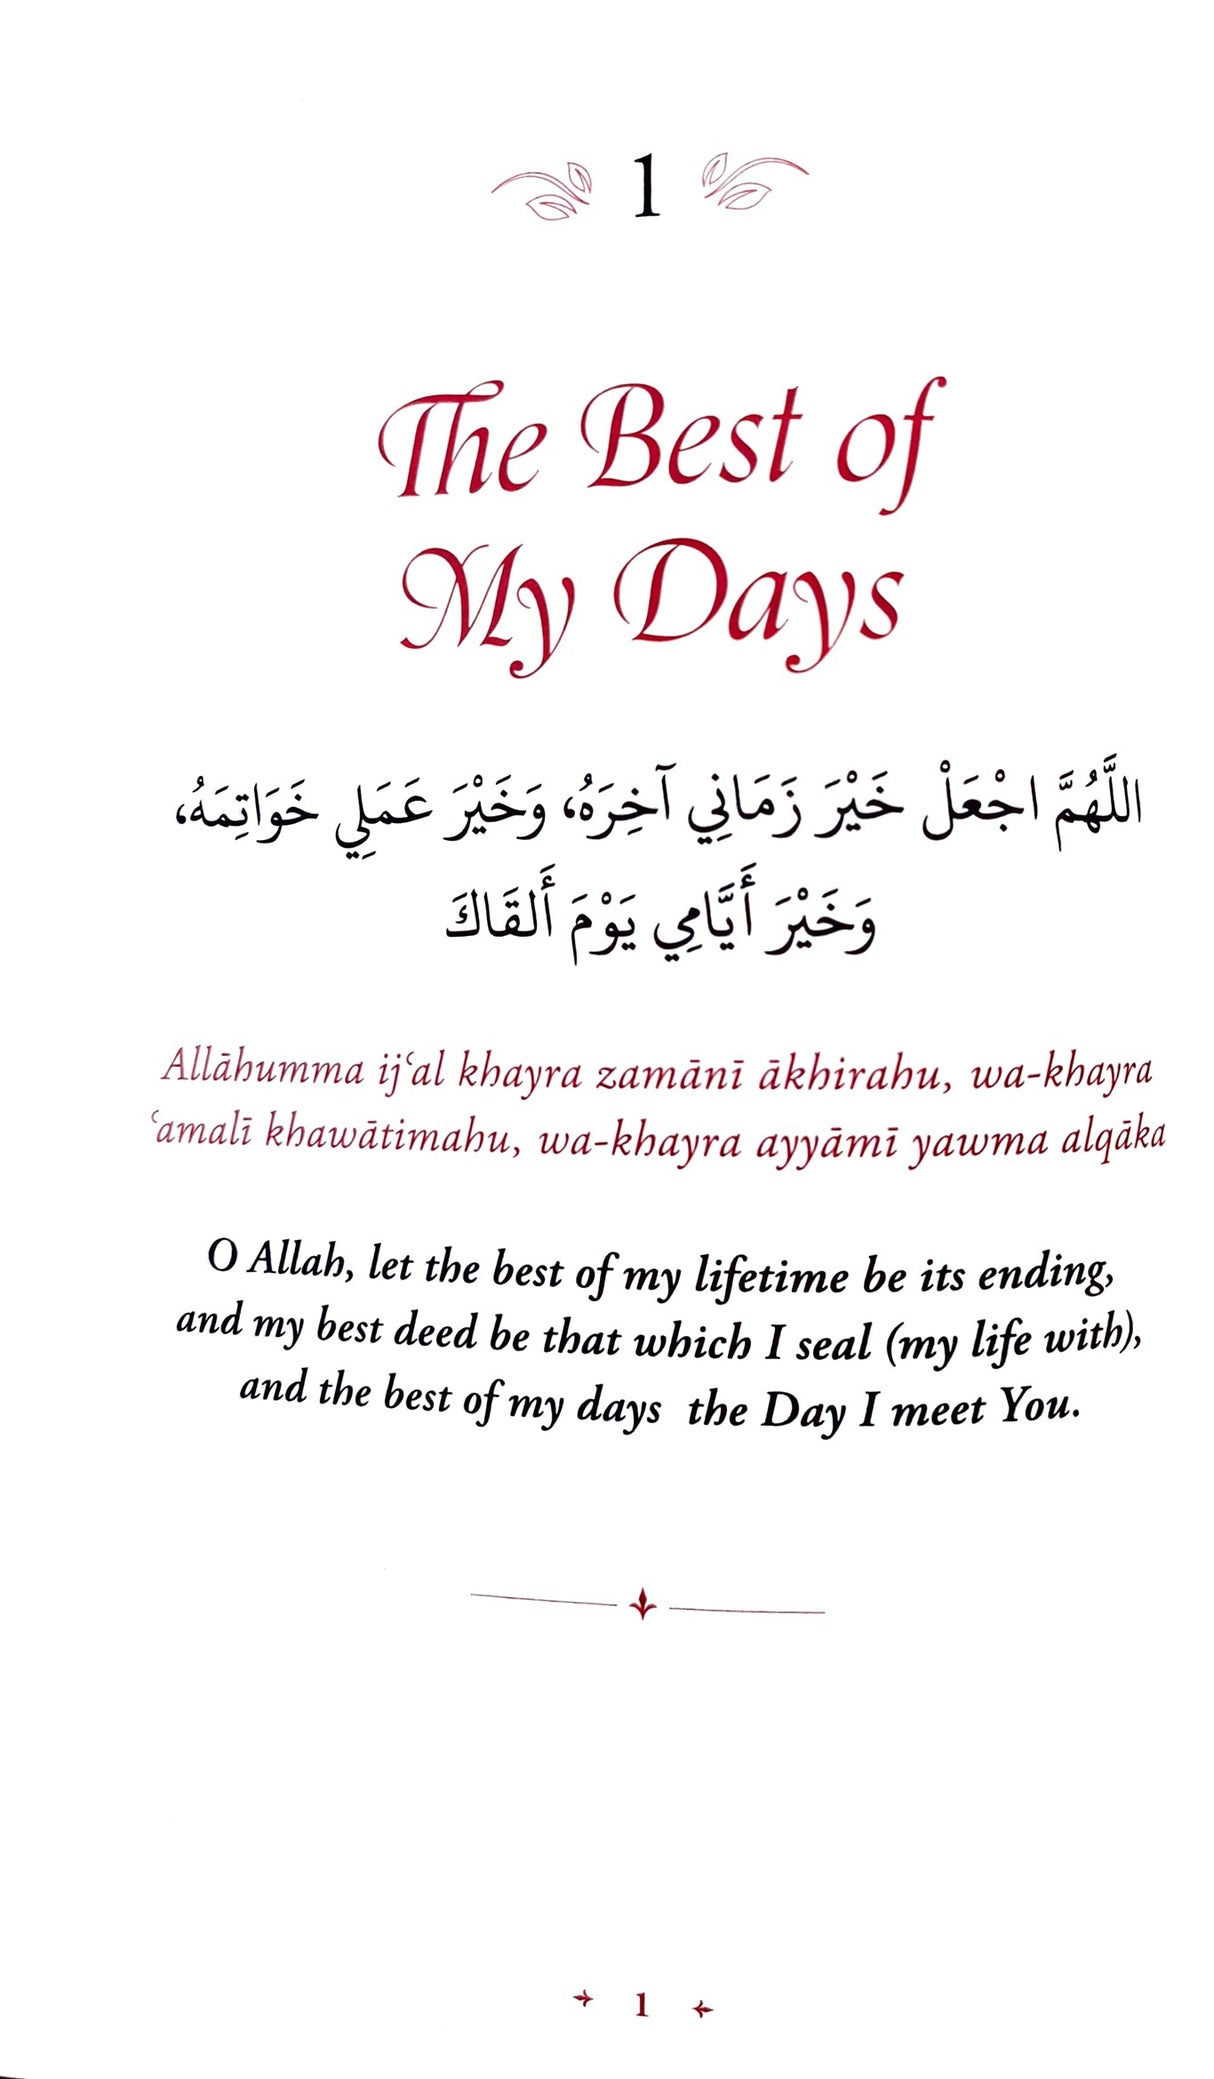 1
The Best of
My Days
اللَّهُمَّ اجْعَلْ خَيْرَ زَمَانِي آخِرَهُ، وَخَيْرَ عَمَلِي خَوَاتِمَهُ،
وَخَيْرَ أَيَّامِي يَوْمَ أَلقَاكَ
Allāhumma ijʿal khayra zamānī ākhirahu, wa-khayra
ʿamalī khawātimahu, wa-khayra ayyāmī yawma alqāka
O Allah, let the best of my lifetime be its ending,
and my best deed be that which I seal (my life with),
and the best of my days the Day I meet You.
1